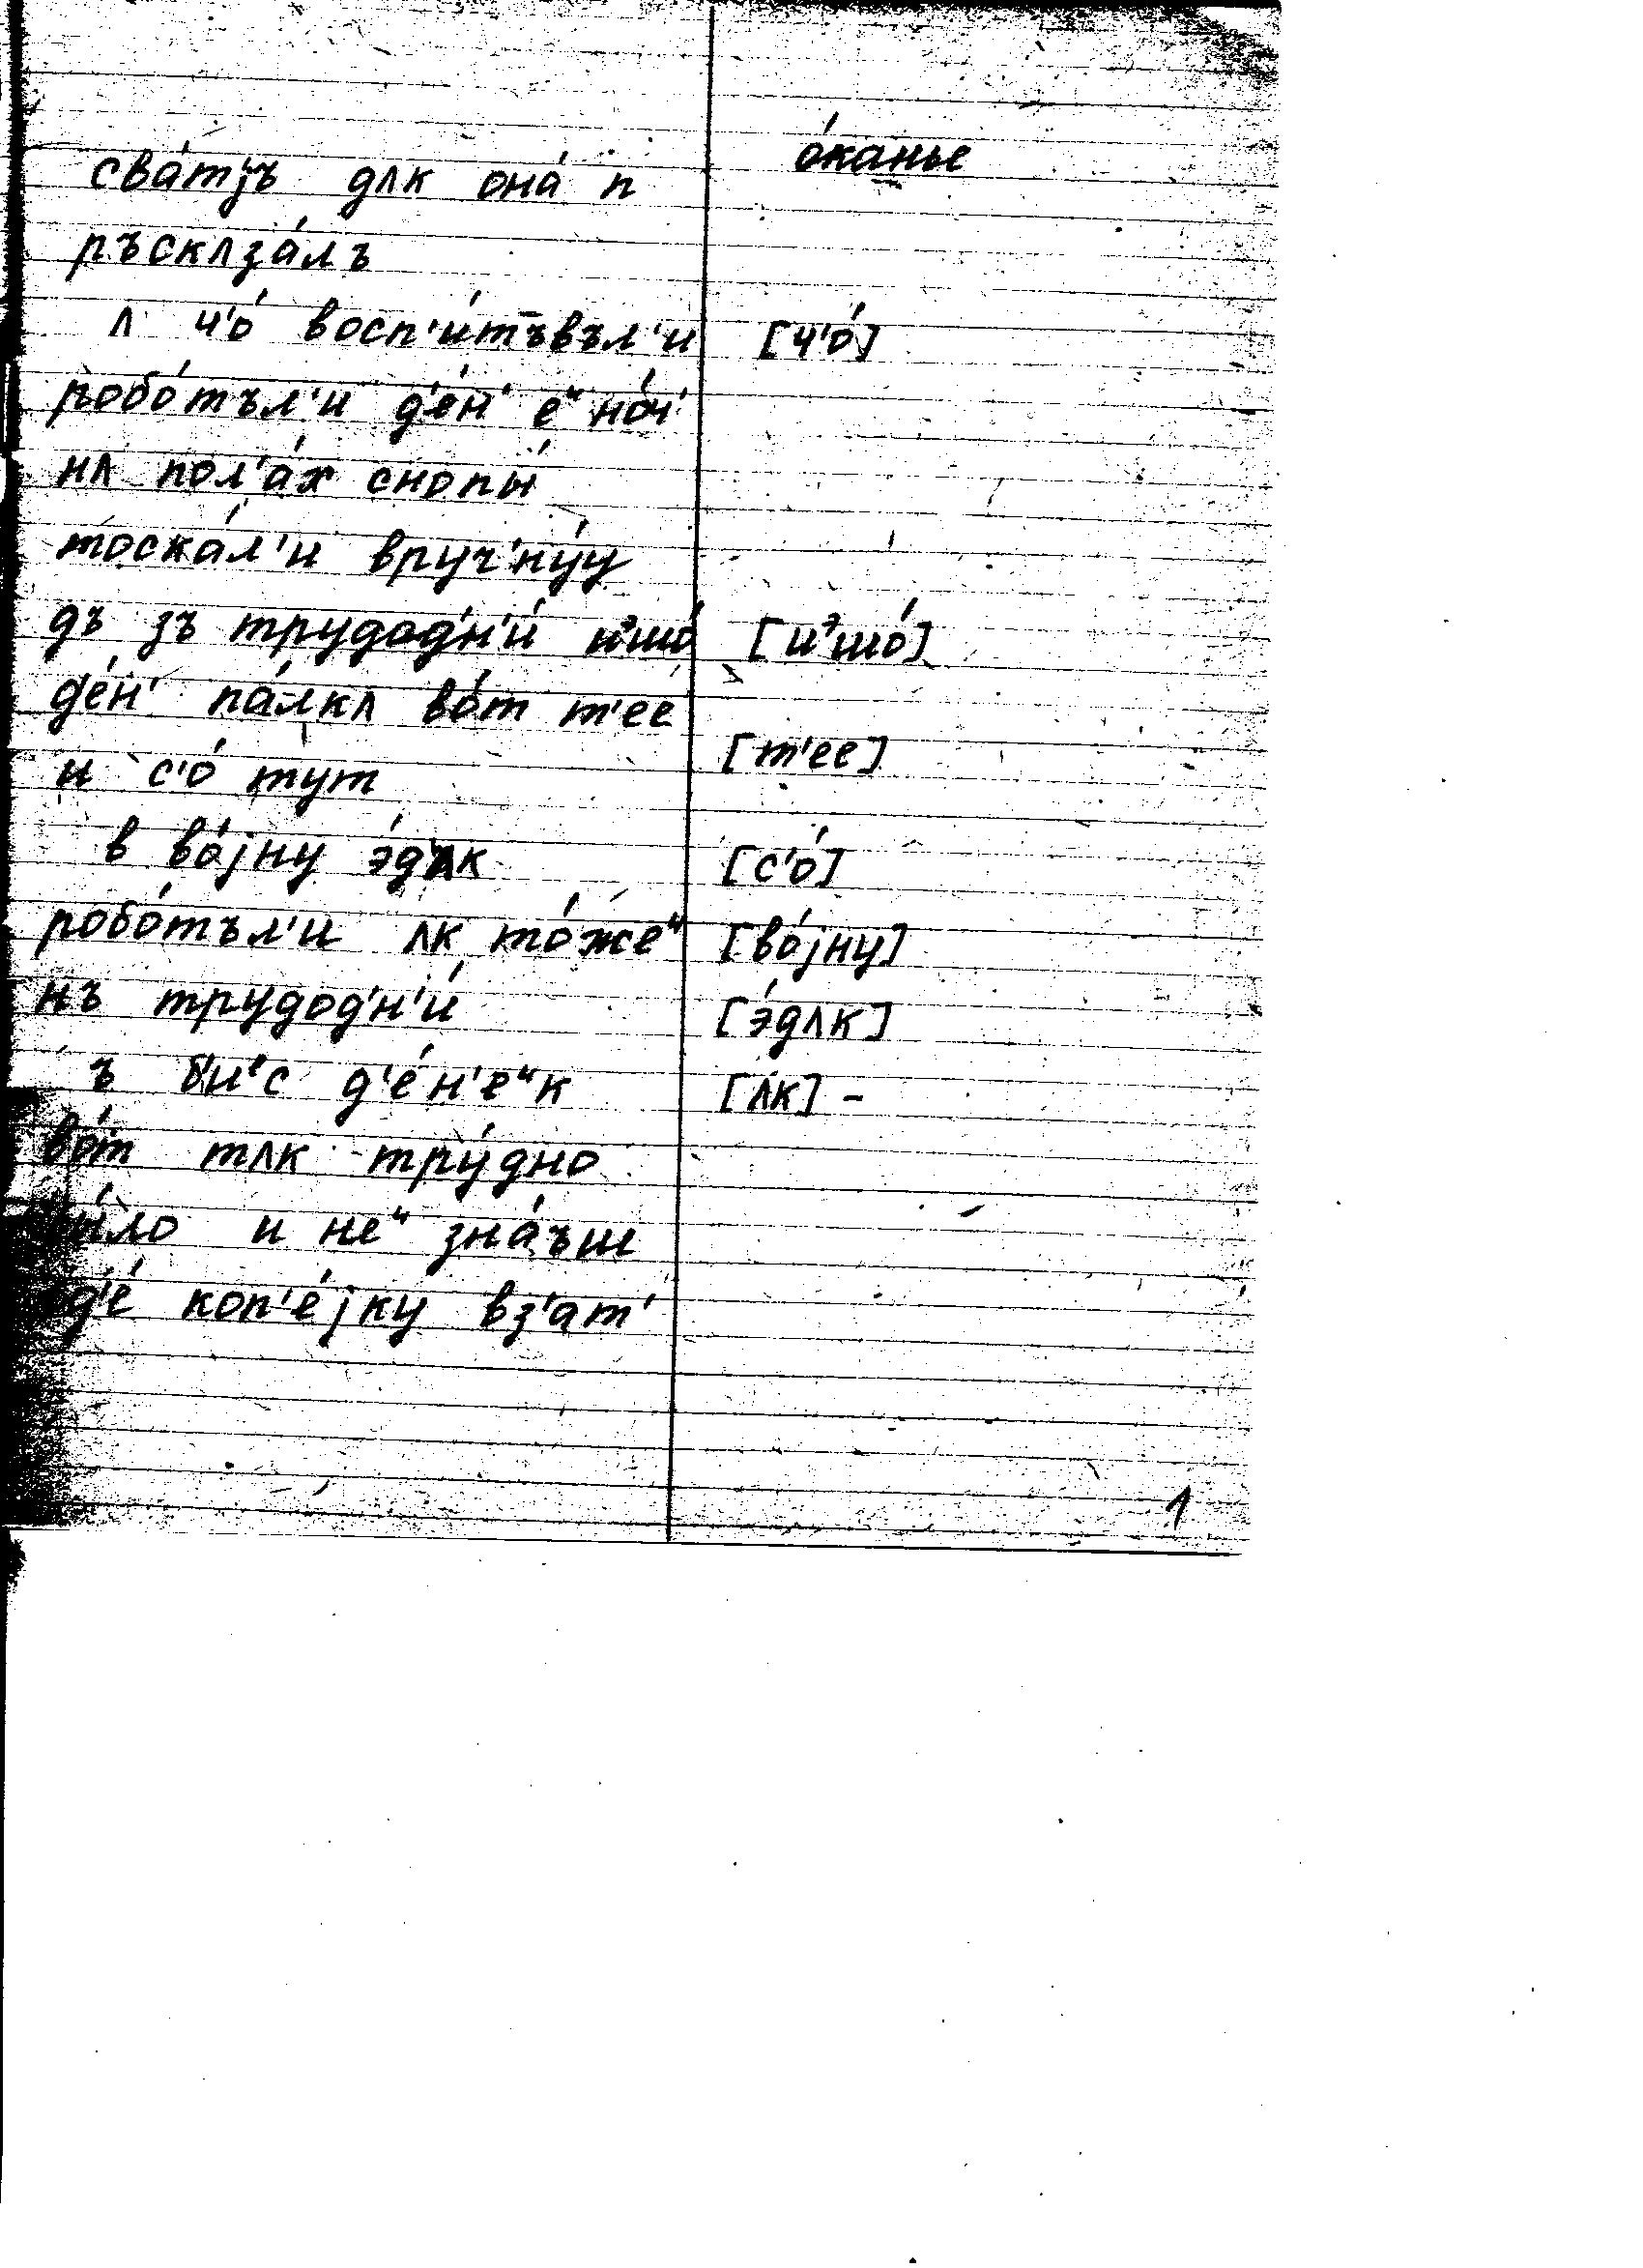 сва́тjъ дʌк она́ п
ръскʌза́лъ
ʌ ч'о́ восп'и́тъвъл'и
робо́тъл'и д'е́н' еᶸ но́ч'
нʌ пол'а́х снопы́
тоска́л'и вруч'ну́у
дъ зъ трудод'н'и́ иᶟшо́
де́н' па́лкʌ во́т т'ее
и с'о́ тут
в во́jну э́дʌк
робо́тъл'и ʌк то́жеᶸ
нъ трудод'н'и́
ъ би'ᵉс д'е́н'еᶸк
во́т тʌк тру́дно
ы́ло и неᶸ зна́ъш
д'е́ коп'е́jку вз'ат'
о́канье
[ч'о́]
[иᶟшо́]
[т'ее]
[с'о́]
[во́jну]
[э́дʌк]
[ʌк] –
1